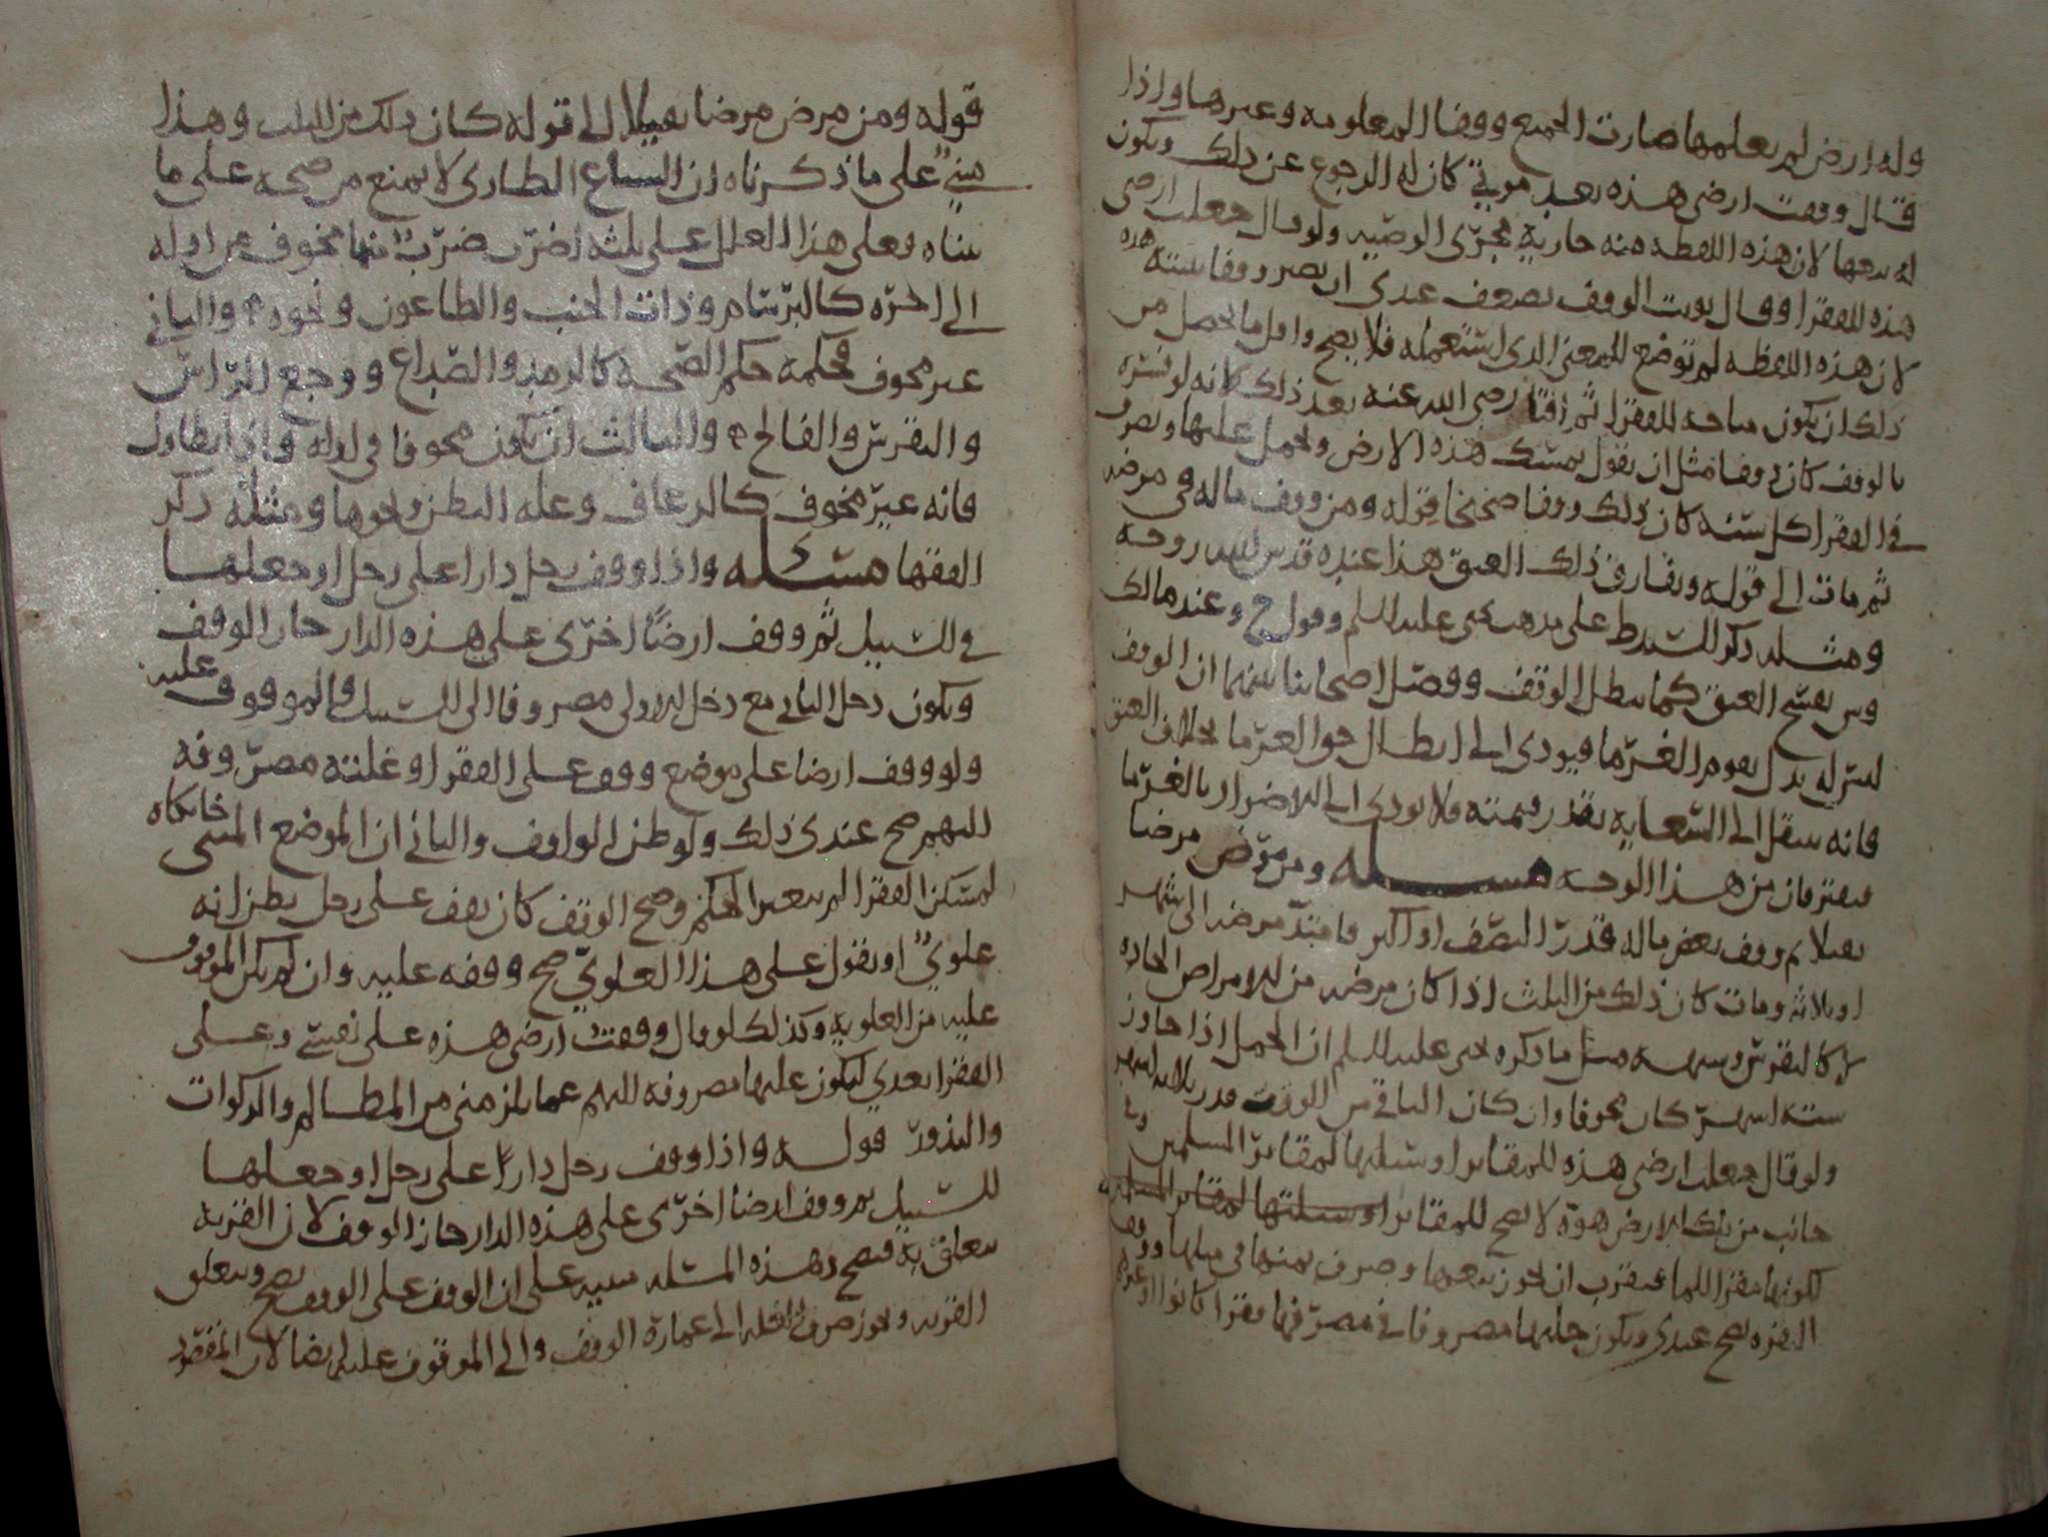 وله ارض لم يعلمها صارت الجميع ووفا المعلومه وغيرها واذا
قال وقفت ارضي هذه بعد موتي كان له الرجوع عن ذلك ويكون
له بيعها لان هذه اللفظه منه جارية مجرى الوصيه ولو قال جعلت ارضي
هذه للفقرا وقال نويت الوقف يضعف عندي ان يصير وقفا بنيته هذه
لان هذه اللفظه لم توضع للمعنى الذي استعمله فلا يصح واقل ما يحصل من
ذلك ان يكون مباحه للفقرا ثم افتا رضي الله عنه بعد ذلك كانه لو فسره
بالوقف كان وقفا مثل ان يقول يمسك هذه الارض ويحمل عليها ويصرف
في الفقرا كل سنه كان ذلك وقفا صحيحا قوله ومن وقف ماله في مرضه
ثم مات الى قوله ويفارق ذلك العتق هذا عنده قدس الله روحه
ومثله ذكر للشروط على مذهب يحيى عليه السلم وقول ح وعند مالك
وش يفسخ العتق كما يبطل الوقف وفصل اصحابنا بينهما ان الوقف
ليس له بدل يقوم الغرما فيودي الى ابطال حق الغرما بخلاف العتق
فانه ينتقل الى السعايه بقدر قيمته فلا يودي الى الاضرار بالغرما
فيفترقان من هذا الوجه مسله ومن مرض مرضا
ثقيلا ثم وقف بعض ماله قدر النصف او اكثر فامتد مرضه الى شهر
او ثلاثه ومات كان ذلك من الثلث اذا كان مرضه من الامراض الحاده
لا كالنقرس وشبهه مثل ما ذكره يحيى عليه السلم ان الحمل اذا جاوز
سته اشهر كان مخوفا وان كان الباقي من الوقت قدر ثلاثه اشهر
ولو قال جعلت ارضي هذه للمقابر او سبلتها لمقابر المسلمين وفي
جانب من تلك الارض هوة لا تصلح للمقابر او سبلتها لمقابر المسلمين
لكونها مقرا للما فيقرب ان يجوز بيعها وصرف ثمنها في مثلها ووقف
البقره يصح عندي ويكون حلبها مصروفا في مصرفها فقرا كانوا او غيرهم
قوله ومن مرض مرضا ثقيلا الى قوله كان ذلك من الثلث وهذا
مبني على ما ذكرناه ان الشياع الطاري لا يمنع من صحه على ما
بيناه وعلى هذا العلل على ثلثه اضرب ضرب منها مخوف من اوله
الى اخره كالبرسام وذات الجنب والطاعون ونحوه والثاني
غير مخوف فحكمه حكم الصحه كالرمد والصداع ووجع الراس
والنقرس والفالج والثالث ان يكون مخوفا في اوله واذا تطاول
فانه غير مخوف كالرعاف وعله البطن ونحوها ومثله ذكر
الفقها مسئله واذا وقف رجل دارا على رجل او جعلها
في السبيل ثم وقف ارضا اخرى على هذه الدار جاز الوقف
ويكون دخل الثاني مع دخل الاولى مصروفا الى السبيل والموقوف عليه
ولو وقف ارضا على موضع وقف على الفقرا وغلته مصروفه
اليهم صح عندي ذلك ولو ظن الواقف والباني ان الموضع المسمى خانكاه
لمسكن الفقرا لم يتغير الحكم وصح الوقف كان يقف على رجل يظن انه
علوي او يقول على هذا العلوي صح وقفه عليه وان لم يكن الموقوف
عليه من العلويه وكذلك لو قال وقفت ارضي هذه على نفسي وعلى
الفقرا بعدي ليكون غلتها مصروفه اليهم عما يلزمني من المظالم والزكوات
والنذور قوله واذا وقف رجل دارا على رجل او جعلها
للسبيل ثم وقف ارضا اخرى على هذه الدار جاز الوقف لان القربه
تتعلق به فيصح وهذه المسله مبنيه على ان الوقف على الوقف يصح وتتعلق
القربه ويجوز صرف الغله الى عمارة الوقف والى الموقوف عليه ايضا لان المقصود